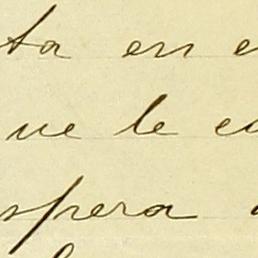 ta en e
ue le co
spera